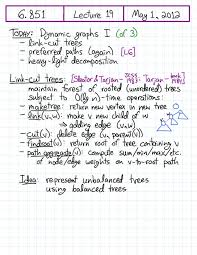 6.851 Lecture 19 May 1, 2012
TODAY: Dynamic graphs I (of 3)
- link-cut trees
- preferred paths (again) [L6]
- heavy-light decomposition
Link-cut trees: [Sleator & Tarjan - Tarjan - book]
- maintain forest of rooted (unordered) trees
subject to O(lg n)-time operations:
- maketree: return new vertex in new tree
- link(v,w): make v new child of w
⇒ adding edge (v,w)
- cut(v): delete edge (v, parent(v))
- findroot(v): return root of tree containing v
- path aggregate(v): compute sum/min/max/etc.
of node/edge weights on v-to-root path
Idea: represent unbalanced trees
using balanced trees